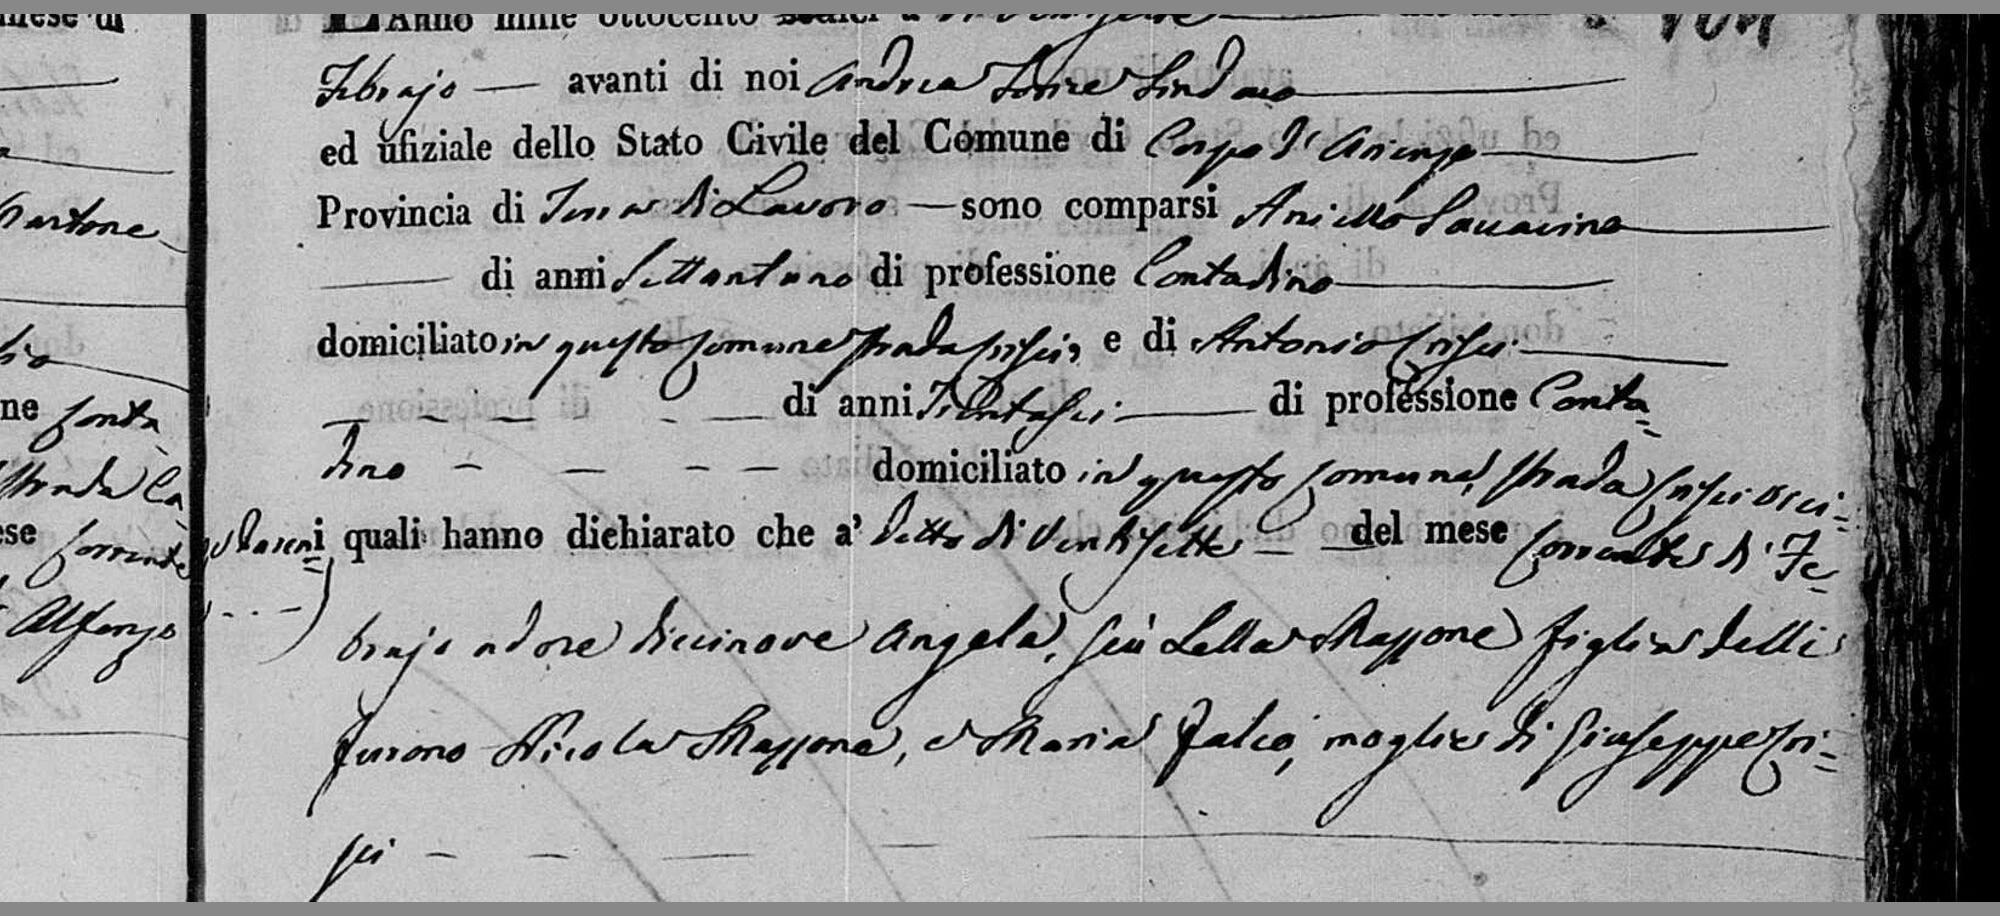 mese di
L'Anno mille ottocento sedici a dì Ventisette
Febrajo — avanti di noi Andrea Sindaco
ed ufiziale dello Stato Civile del Comune di Corpo d'Arienzo
Provincia di Terra di Lavoro — sono comparsi Aniello
— di anni Settantuno di professione Contadino
domiciliato in questo Comune strada Crisci, e di Antonio Crisci
— — — — — di anni Trentasei — di professione Conta=
dino — — — — domiciliato in questo Comune, strada Crisci
i quali hanno dichiarato che a' detto dì Ventisette — del mese Corrente di Fe=
brajo ad ore diecinove Angela, Massone figlia delli
furono Nicola Massone, e Maria moglie di Giuseppe Cri=
sci — — — —
ne Conta=
strada Ca=
ese Corrente
Alfonzo